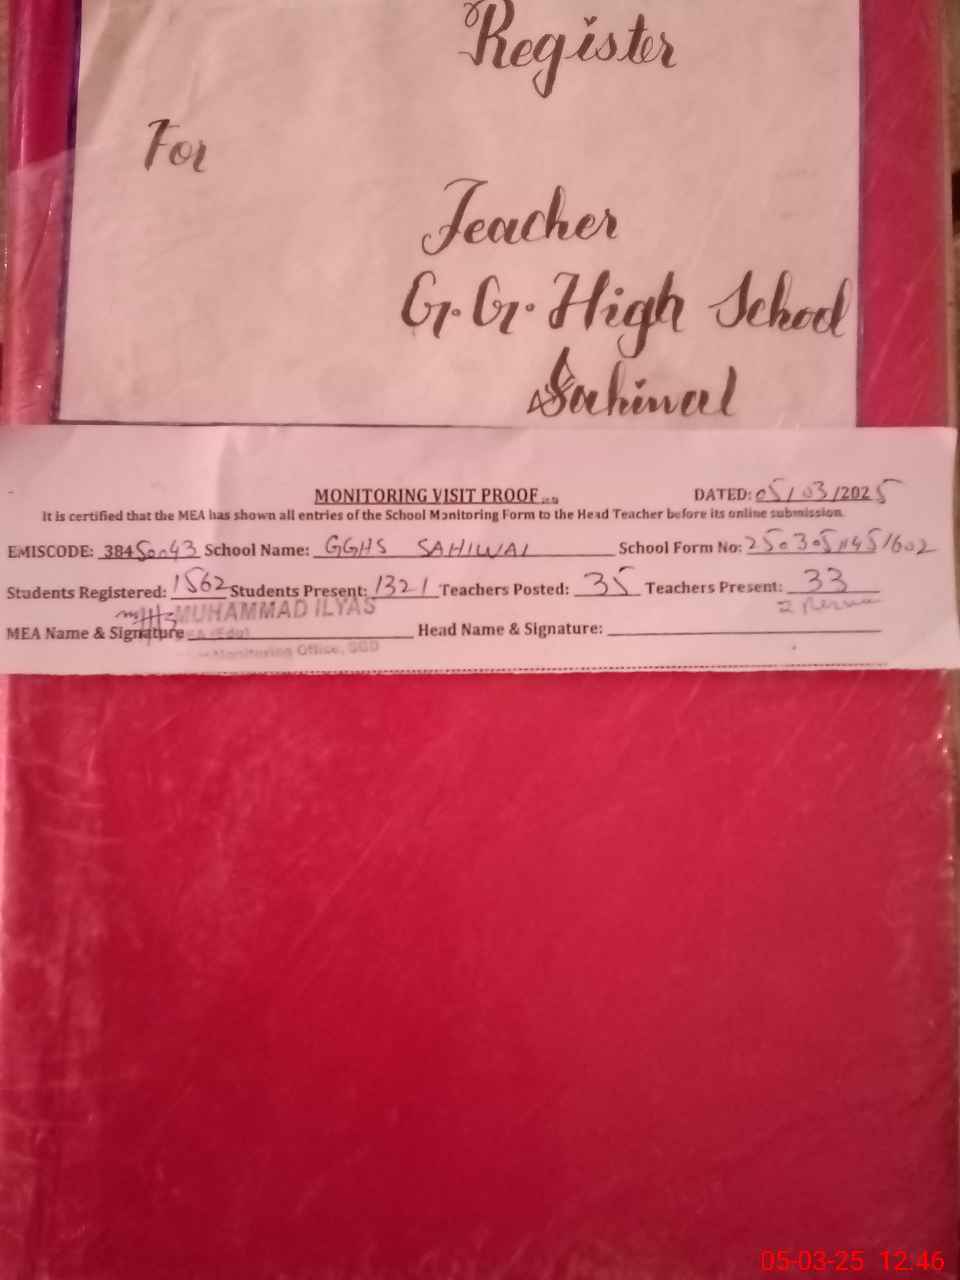 Register
For
Teacher
G.G. High School
Sahiwal
MONITORING VISIT PROOF DATED: 05/03/2025
It is certified that the MEA has shown all entries of the School Monitoring Form to the Head Teacher before its online submission.
EMISCODE: 38450043 School Name: GGHS SAHIWAL School Form No:
Students Registered: 1562 Students Present: 1321 Teachers Posted: 35 Teachers Present: 33
MUHAMMAD ILYAS
MEA Name & Signature Head Name & Signature:
Monitoring Office, SGD
05-03-25 12:46